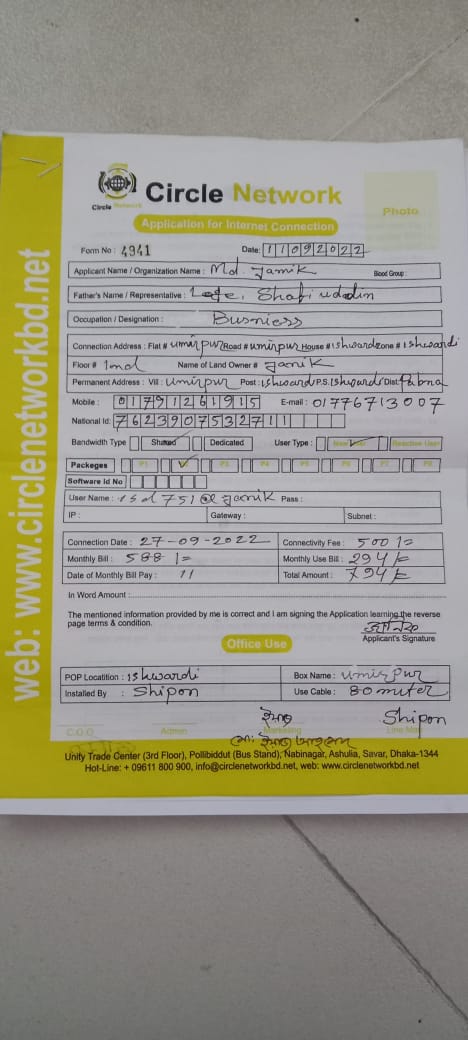 web: www.circlenetworkbd.net
Circle Network
Circle Network
Photo
Application for Internet Connection
Form No : 4941 Date: 11092022
Applicant Name / Organization Name : Md. Jamik Blood Group :
Father's Name / Representative : Late. Shafiuddin
Occupation / Designation : Busniess
Connection Address : Flat # umirpur Road # umirpur House # ishwardi Zone # ishwardi
Floor # Name of Land Owner # Jamik
Permanent Address : Vill : umirpur Post : ishwardi P.S. ishwardi Dist Pabna
Mobile : 01791261915 E-mail : 01776713007
National Id: 7623907532711
Bandwidth Type Shared Dedicated User Type : New User Reactive User
Packeges P1 P2 P3 P4 P5 P6 P7 P8
Software Id No
User Name : Pass :
IP : Gateway : Subnet :
Connection Date : 27-09-2022 Connectivity Fee : 500/=
Monthly Bill : 588/= Monthly Use Bill : 294/=
Date of Monthly Bill Pay : 11 Total Amount : 794/=
In Word Amount :
The mentioned information provided by me is correct and I am signing the Application learning the reverse
page terms & condition.
Applicant's Signature
Office Use
POP Locatition : ishwardi Box Name : umirpur
Installed By : Shipon Use Cable : 80 miter
Shipon
C.O.O Admin Marketing Line Man
Unity Trade Center (3rd Floor), Pollibiddut (Bus Stand), Nabinagar, Ashulia, Savar, Dhaka-1344
Hot-Line: + 09611 800 900, info@circlenetworkbd.net, web: www.circlenetworkbd.net